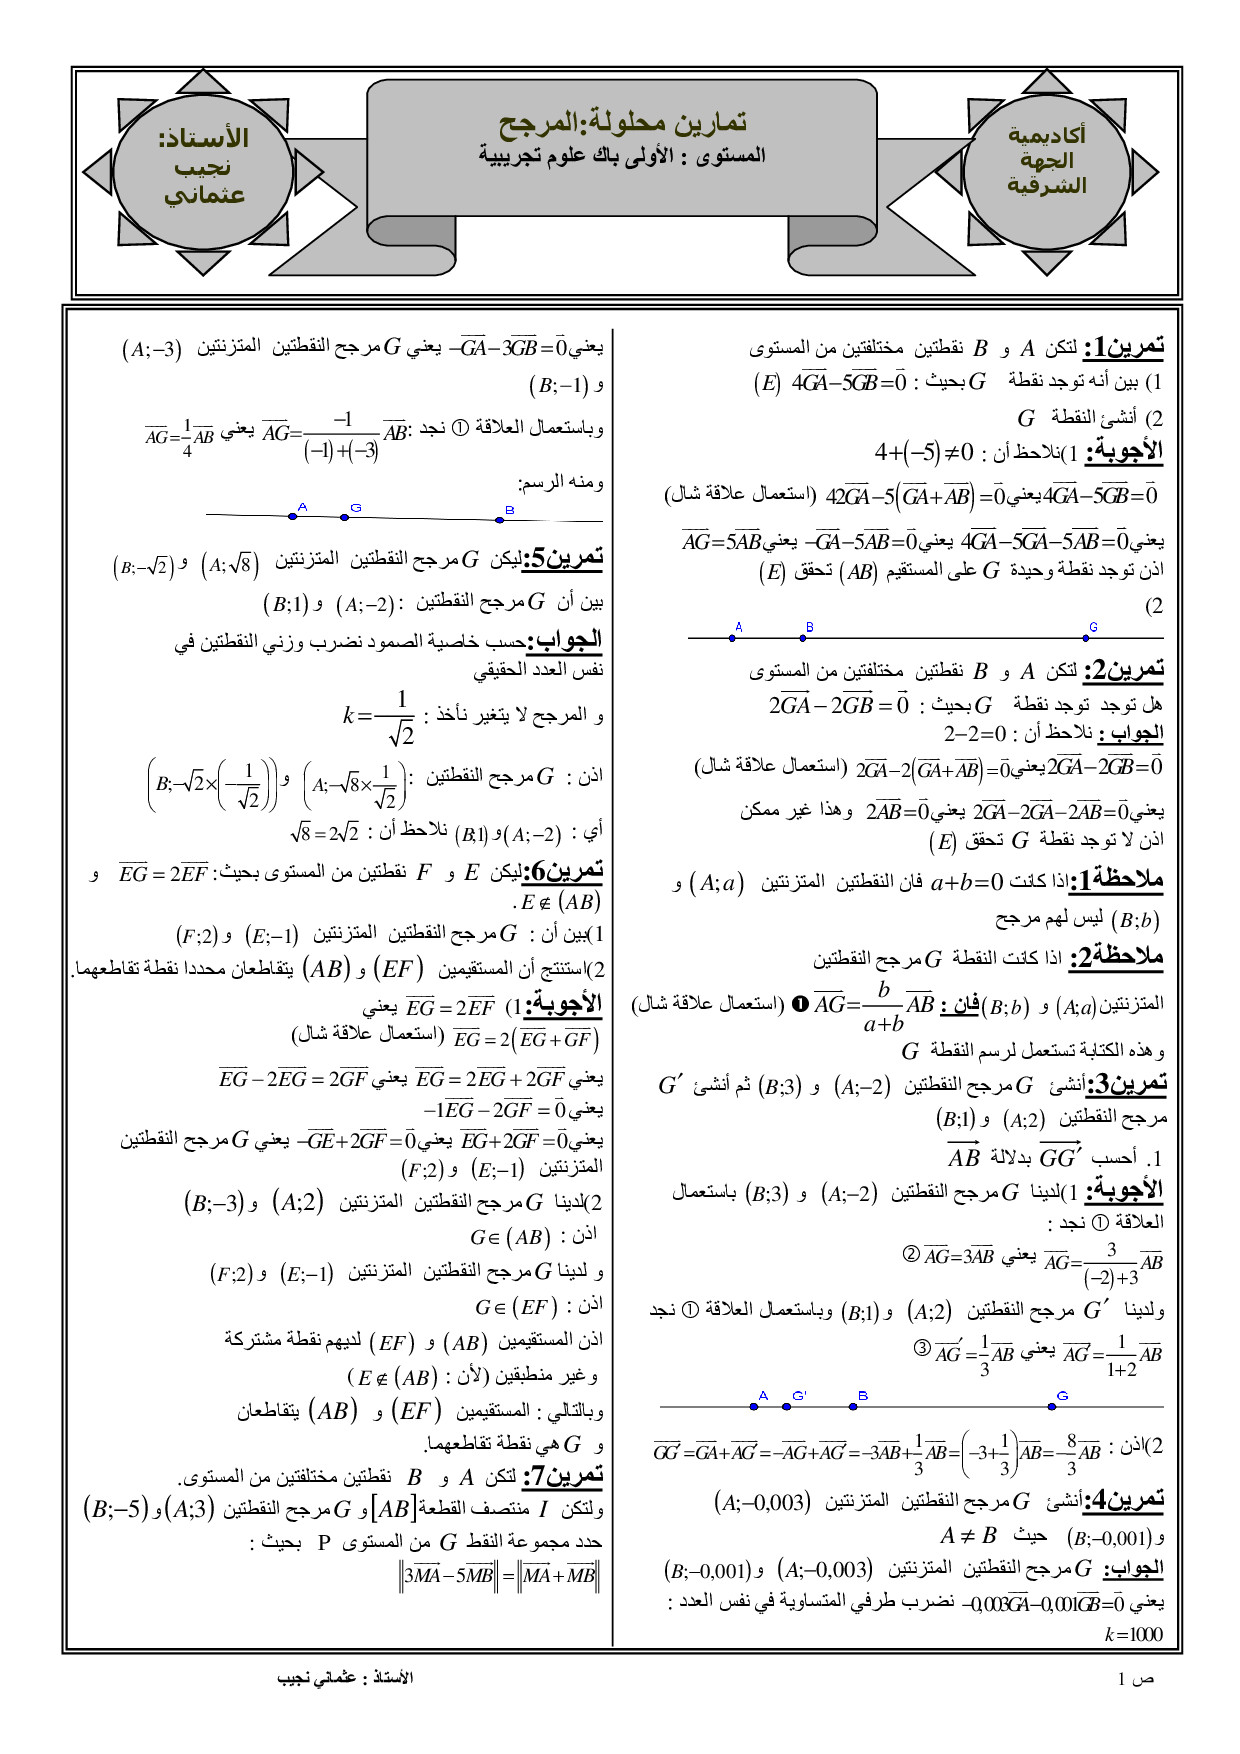 الأستاذ:
نجيب
عثماني
تمارين محلولة:المرجح
المستوى : الأولى باك علوم تجريبية
أكاديمية
الجهة
الشرقية
تمرين1: لتكن A و B نقطتين مختلفتين من المستوى
1) بين أنه توجد نقطة G بحيث : 4GA−5GB=0 (E)
2) أنشئ النقطة G
الأجوبة: 1)نلاحظ أن : 4+(−5)≠0
4GA−5GB=0 يعني 42GA−5(GA+AB)=0 (استعمال علاقة شال)
يعني 4GA−5GA−5AB=0 يعني −GA−5AB=0 يعني AG=5AB
اذن توجد نقطة وحيدة G على المستقيم (AB) تحقق (E)
2)
A B G
تمرين2: لتكن A و B نقطتين مختلفتين من المستوى
هل توجد توجد نقطة G بحيث : 2GA−2GB=0
الجواب : نلاحظ أن : 2−2=0
2GA−2GB=0 يعني 2GA−2(GA+AB)=0 (استعمال علاقة شال)
يعني 2GA−2GA−2AB=0 يعني 2AB=0 وهذا غير ممكن
اذن لا توجد نقطة G تحقق (E)
ملاحظة1: اذا كانت a+b=0 فان النقطتين المتزنتين (A;a) و
(B;b) ليس لهم مرجح
ملاحظة2: اذا كانت النقطة G مرجح النقطتين
المتزنتين (A;a) و (B;b) فان : AG=b/(a+b) AB ❶ (استعمال علاقة شال)
وهذه الكتابة تستعمل لرسم النقطة G
تمرين3: أنشئ G مرجح النقطتين (A;−2) و (B;3) ثم أنشئ G′
مرجح النقطتين (A;2) و (B;1)
1. أحسب GG′ بدلالة AB
الأجوبة: 1)لدينا G مرجح النقطتين (A;−2) و (B;3) باستعمال
العلاقة ① نجد :
AG=3/((−2)+3) AB يعني AG=3AB ②
ولدينا G′ مرجح النقطتين (A;2) و (B;1) وباستعمال العلاقة ① نجد
AG′=1/(1+2) AB يعني AG′=1/3 AB ③
A G' B G
2)اذن : GG′=GA+AG′=−AG+AG′=−3AB+1/3 AB=(−3+1/3)AB=−8/3 AB
تمرين4: أنشئ G مرجح النقطتين المتزنتين (A;−0,003)
و (B;−0,001) حيث A≠B
الجواب: G مرجح النقطتين المتزنتين (A;−0,003) و (B;−0,001)
يعني −0,003GA−0,001GB=0 نضرب طرفي المتساوية في نفس العدد :
k=1000
يعني −GA−3GB=0 يعني G مرجح النقطتين المتزنتين (A;−3)
و (B;−1)
وباستعمال العلاقة ① نجد : AG=−1/((−1)+(−3)) AB يعني AG=1/4 AB
ومنه الرسم:
A G B
تمرين5: ليكن G مرجح النقطتين المتزنتين (A;√8) و (B;−√2)
بين أن G مرجح النقطتين : (A;−2) و (B;1)
الجواب: حسب خاصية الصمود نضرب وزني النقطتين في
نفس العدد الحقيقي
و المرجح لا يتغير نأخذ : k=−1/√2
اذن : G مرجح النقطتين : (A;−√8×1/√2) و (B;−√2×(−1/√2))
أي : (A;−2) و (B;1) نلاحظ أن : √8=2√2
تمرين6: ليكن E و F نقطتين من المستوى بحيث: EG=2EF و
E∉(AB) .
1)بين أن : G مرجح النقطتين المتزنتين (E;−1) و (F;2)
2)استنتج أن المستقيمين (EF) و (AB) يتقاطعان محددا نقطة تقاطعهما.
الأجوبة: 1) EG=2EF يعني
EG=2(EG+GF) (استعمال علاقة شال)
يعني EG=2EG+2GF يعني EG−2EG=2GF
يعني −1EG−2GF=0
يعني EG+2GF=0 يعني −GE+2GF=0 يعني G مرجح النقطتين
المتزنتين (E;−1) و (F;2)
2)لدينا G مرجح النقطتين المتزنتين (A;2) و (B;−3)
اذن : G∈(AB)
و لدينا G مرجح النقطتين المتزنتين (E;−1) و (F;2)
اذن : G∈(EF)
اذن المستقيمين (AB) و (EF) لديهم نقطة مشتركة
وغير منطبقين (لأن : E∉(AB) )
وبالتالي : المستقيمين (EF) و (AB) يتقاطعان
و G هي نقطة تقاطعهما.
تمرين7: لتكن A و B نقطتين مختلفتين من المستوى.
ولتكن I منتصف القطعة [AB] و G مرجح النقطتين (A;3) و (B;−5)
حدد مجموعة النقط G من المستوى P بحيث :
‖3MA−5MB‖=‖MA+MB‖
الأستاذ : عثماني نجيب
ص 1